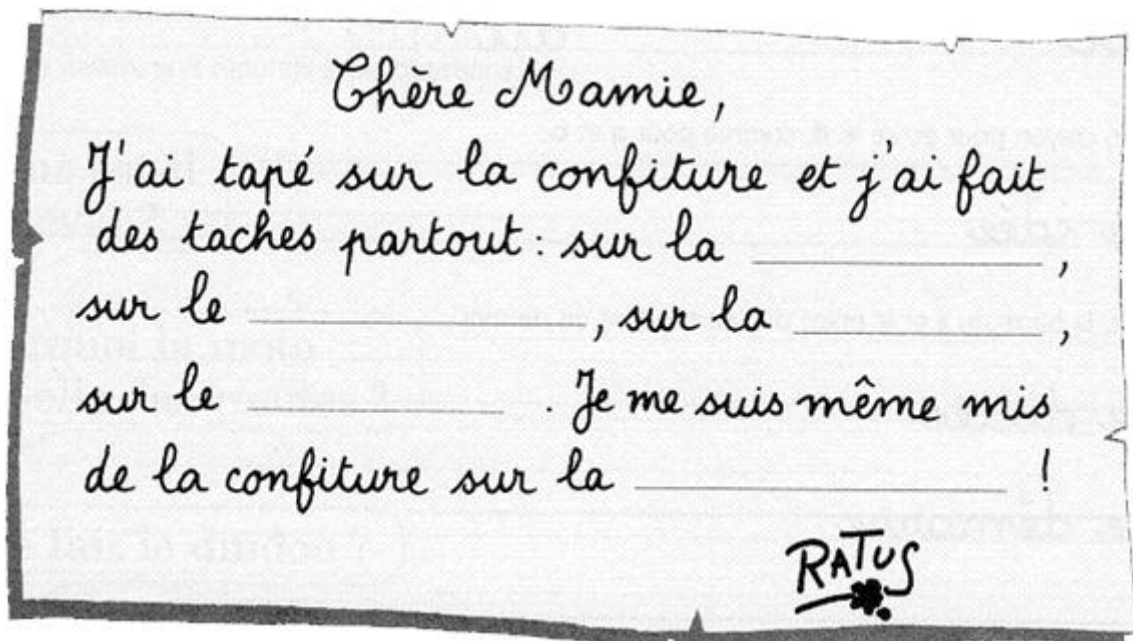 Chère Mamie,
J'ai tapé sur la confiture et j'ai fait
des taches partout : sur la __________ ,
sur le __________ , sur la __________ ,
sur le __________ . Je me suis même mis
de la confiture sur la __________ !
RATUS